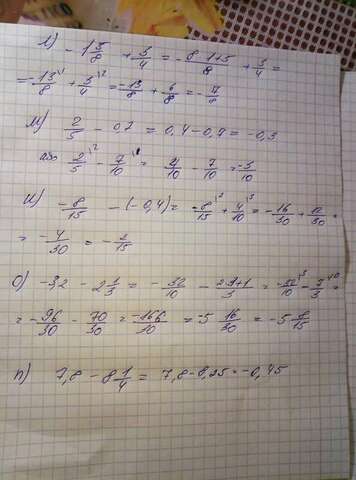 л) -1 5/8 + 3/4 = - (8·1+5)/8 + 3/4 =
= -13/8 \1 + 3/4 \2 = -13/8 + 6/8 = -7/8
м) 2/5 - 0,7 = 0,4 - 0,7 = -0,3
або 2/5 \2 - 7/10 \1 = 4/10 - 7/10 = -3/10
н) -8/15 - (-0,4) = -8/15 \2 + 4/10 \3 = -16/30 + 12/30 =
= -4/30 = -2/15
о) -3,2 - 2 1/3 = -32/10 - (2·3+1)/3 = -32/10 \3 - 7/3 \10 =
= -96/30 - 70/30 = -166/30 = -5 16/30 = -5 8/15
п) 7,8 - 8 1/4 = 7,8 - 8,25 = -0,45